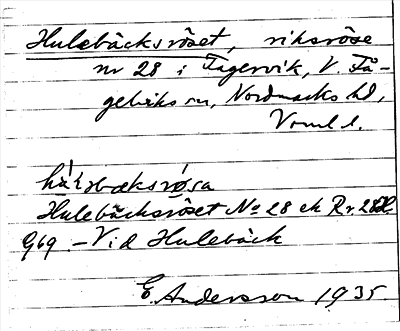 Hulebäcksröset, riksröse
nr 28 i Fågervik, V. Få-
geviks sn, Nordmarks hd,
Vrml l.
Hulebäcksröset No 28 ek Rr 28
G69. - Vid Hulebäck
E. Andersson 1935